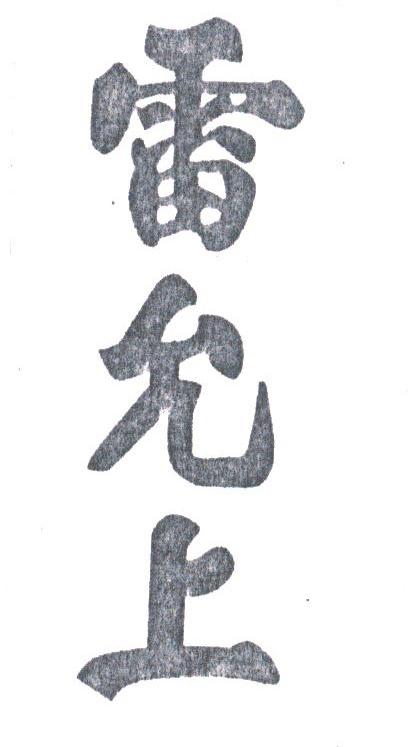 雷允上